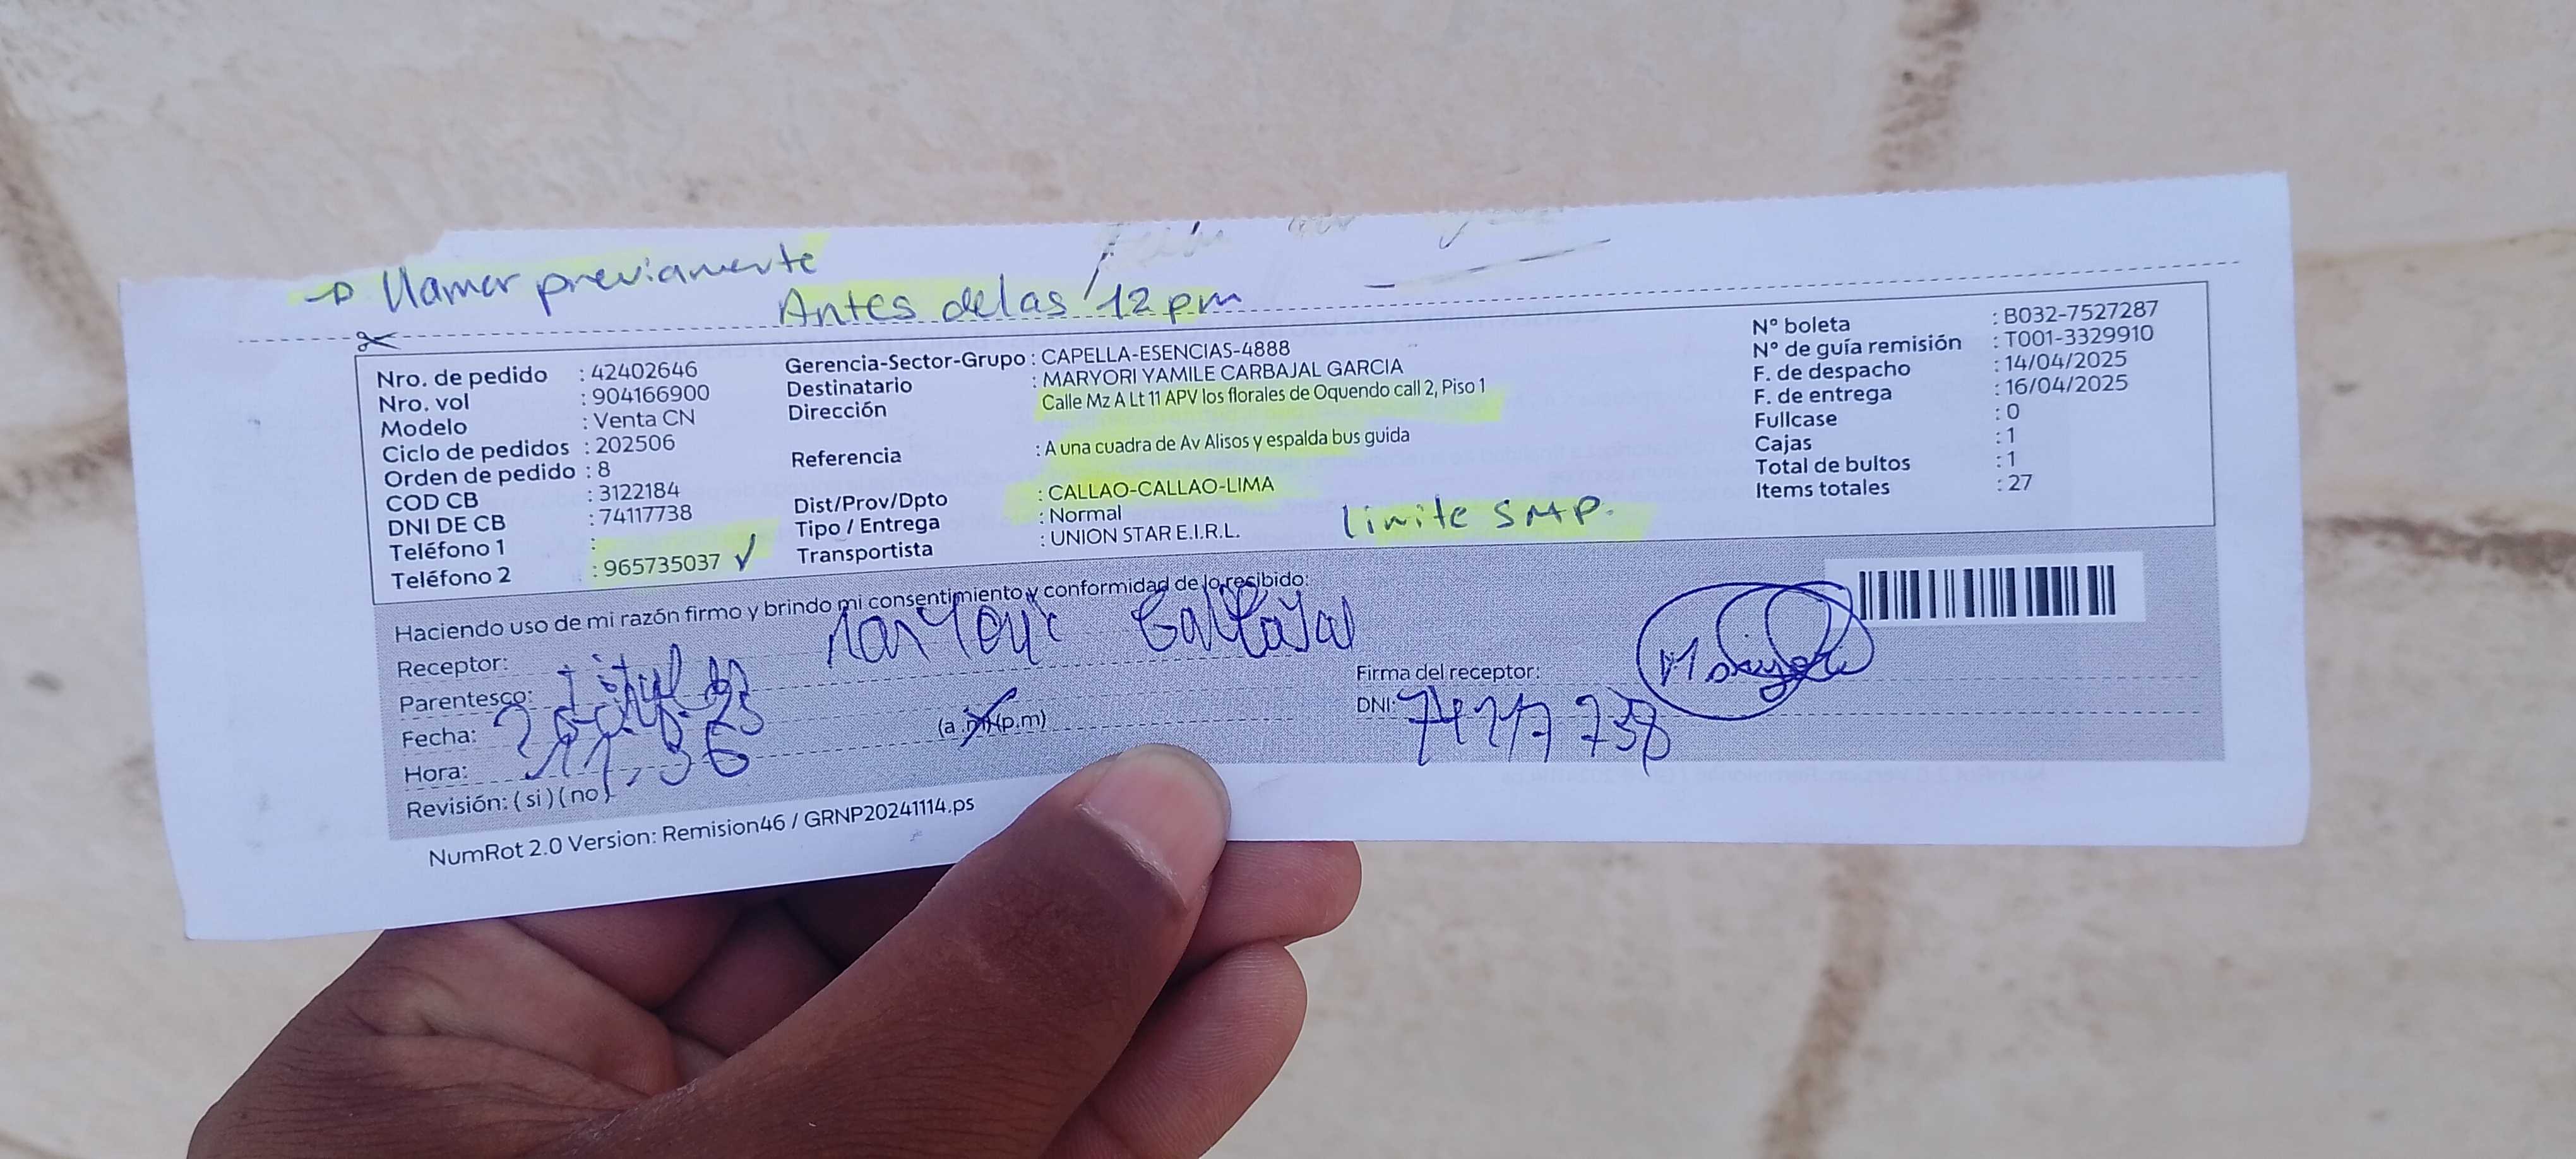 → Llamar previamente
Antes de las 12 pm
Nro. de pedido : 42402646
Nro. vol : 904166900
Modelo : Venta CN
Ciclo de pedidos : 202506
Orden de pedido : 8
COD CB : 3122184
DNI DE CB : 74117738
Teléfono 1 :
Teléfono 2 : 965735037 ✓
Gerencia-Sector-Grupo : CAPELLA-ESENCIAS-4888
Destinatario : MARYORI YAMILE CARBAJAL GARCIA
Dirección Calle Mz A Lt 11 APV los florales de Oquendo call 2, Piso 1
Referencia : A una cuadra de Av Alisos y espalda bus guida
Dist/Prov/Dpto : CALLAO-CALLAO-LIMA
Tipo / Entrega : Normal
Transportista : UNION STAR E.I.R.L.
limite SMP.
N° boleta : B032-7527287
N° de guía remisión : T001-3329910
F. de despacho : 14/04/2025
F. de entrega : 16/04/2025
Fullcase : 0
Cajas : 1
Total de bultos : 1
Items totales : 27
Haciendo uso de mi razón firmo y brindo mi consentimiento y conformidad de lo recibido:
Receptor: Maryori Carbajal
Parentesco:
Fecha:
Hora: 11:36 (a.m)(p.m)
Revisión: (si) (no)
Firma del receptor: Maryori
DNI: 74117738
NumRot 2.0 Version: Remision46 / GRNP20241114.ps